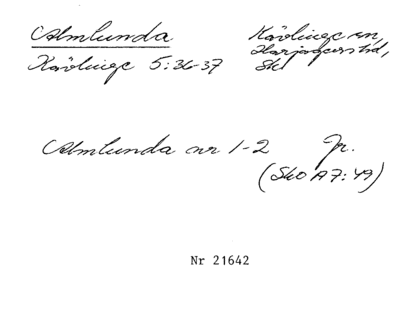 Almlunda
Kävlinge sn,
Harjagers hd,
Sk
Kävlinge 5:36-37
Almlunda nr 1-2 Jr.
(SkO A7:49)
Nr 21642